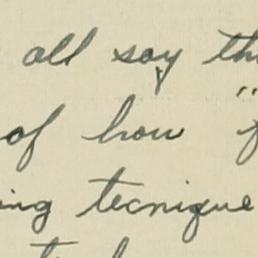 all say th
of how "f
ing tecnique